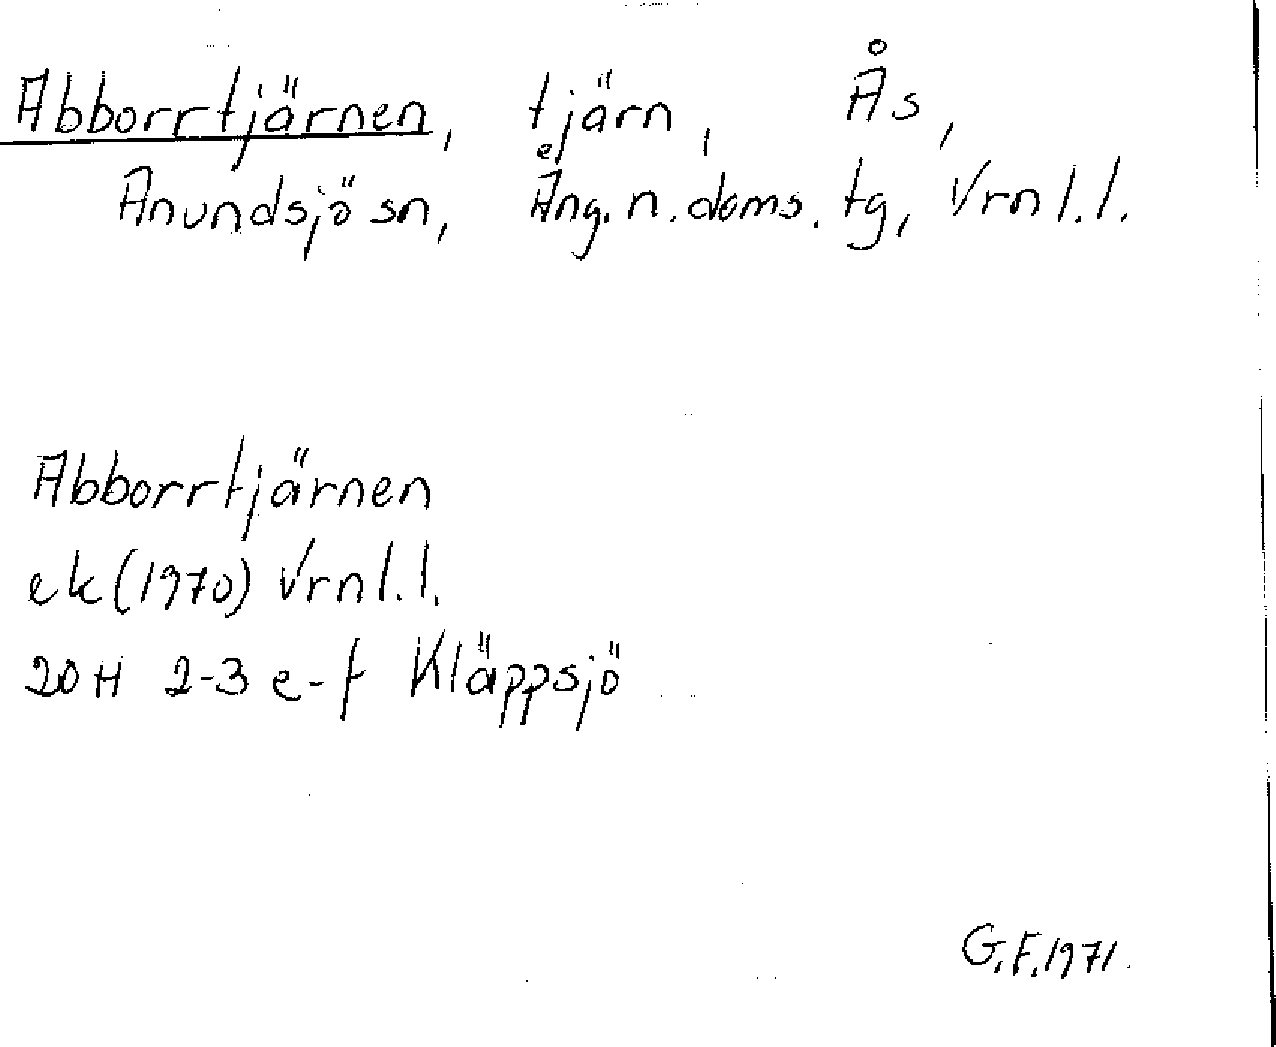 Abborrtjärnen, tjärn, Ås,
Anundsjö sn, Ång. n. doms. tg, Vrnl.l.
Abborrtjärnen
ek (1970) Vrnl.l.
20H 2-3 e-f Kläppsjö
G.F. 1971.